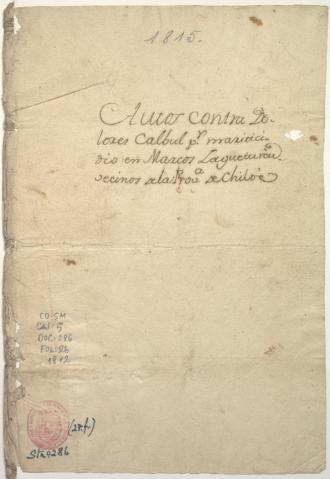 1815.
Autos contra Do-
lores Calbul pr. maritici-
dio en Marcos
vecinos de la Prova. de Chiloe
CO-SM
CAJ: 5
DOC: 286
FOL: 26
1812
(27 f.)